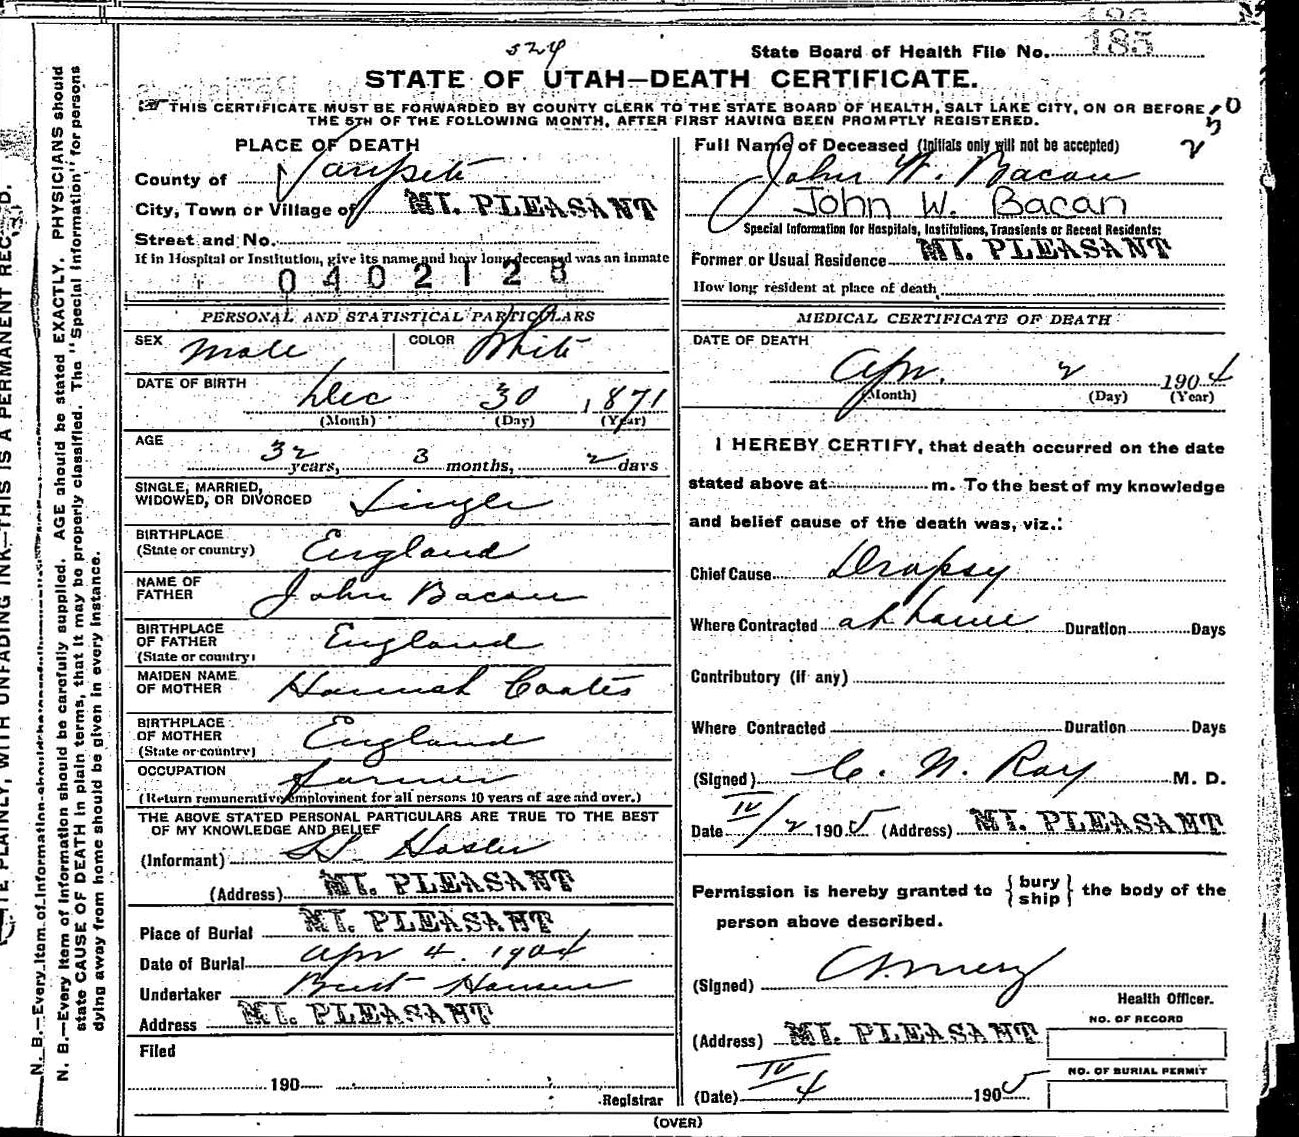 185
524
State Board of Health File No.
STATE OF UTAH—DEATH CERTIFICATE.
THIS CERTIFICATE MUST BE FORWARDED BY COUNTY CLERK TO THE STATE BOARD OF HEALTH, SALT LAKE CITY, ON OR BEFORE
THE 5TH OF THE FOLLOWING MONTH, AFTER FIRST HAVING BEEN PROMPTLY REGISTERED.
PLACE OF DEATH
County of Sanpete
City, Town or Village of MT. PLEASANT
Street and No.
If in Hospital or Institution, give its name and how long deceased was an inmate
0402128
PERSONAL AND STATISTICAL PARTICULARS
SEX Male COLOR White
DATE OF BIRTH Dec 30 1871
(Month) (Day) (Year)
AGE
32 years, 3 months, 2 days
SINGLE, MARRIED,
WIDOWED, OR DIVORCED Single
BIRTHPLACE
(State or country) England
NAME OF
FATHER John Bacon
BIRTHPLACE
OF FATHER England
(State or country)
MAIDEN NAME
OF MOTHER Hannah Coates
BIRTHPLACE
OF MOTHER England
(State or country)
OCCUPATION farmer
(Return remunerative employment for all persons 10 years of age and over.)
THE ABOVE STATED PERSONAL PARTICULARS ARE TRUE TO THE BEST
OF MY KNOWLEDGE AND BELIEF
(Informant) Hasler
(Address) MT. PLEASANT
Place of Burial MT. PLEASANT
Date of Burial Apr 4. 1904
Undertaker Hansen
Address MT. PLEASANT
Filed
190
Registrar
Full Name of Deceased (Initials only will not be accepted)
John W. Bacan
John W. Bacan
Special Information for Hospitals, Institutions, Transients or Recent Residents:
Former or Usual Residence MT. PLEASANT
How long resident at place of death
MEDICAL CERTIFICATE OF DEATH
DATE OF DEATH
Apr. 2 1904
(Month) (Day) (Year)
I HEREBY CERTIFY, that death occurred on the date
stated above at m. To the best of my knowledge
and belief cause of the death was, viz.:
Chief Cause Dropsy
Where Contracted at home Duration Days
Contributory (if any)
Where Contracted Duration Days
(Signed) C. N. Ray M. D.
Date IV/2 1905 (Address) MT. PLEASANT
Permission is hereby granted to {bury
ship} the body of the
person above described.
(Signed)
Health Officer.
(Address) MT. PLEASANT
NO. OF RECORD
NO. OF BURIAL PERMIT
(Date) IV 4 1905
(OVER)
N. B.—Every item of information should be carefully supplied. AGE should be stated EXACTLY. PHYSICIANS should
state CAUSE OF DEATH in plain terms, that it may be properly classified. The "Special Information" for persons
dying away from home should be given in every instance.
PLAINLY, WITH UNFADING INK—THIS IS A PERMANENT